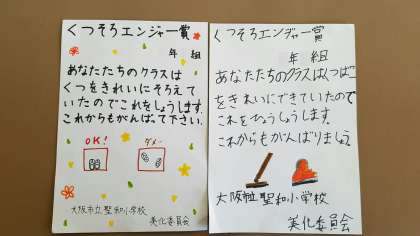 くつそろエンジャー賞
年 組
あなたたちのクラスは
くつをきれいにそろえて
いたのでこれをしょうします。
これからもがんばって下さい。
OK!
ダメー
大阪市立聖和小学校
美化委員会
くつそろエンジャー賞
年 組
あなたたちのクラスはくつばこ
をきれいにできていたので
これをひょうしょうします。
これからもがんばりましょう
大阪市立聖和小学校
美化委員会